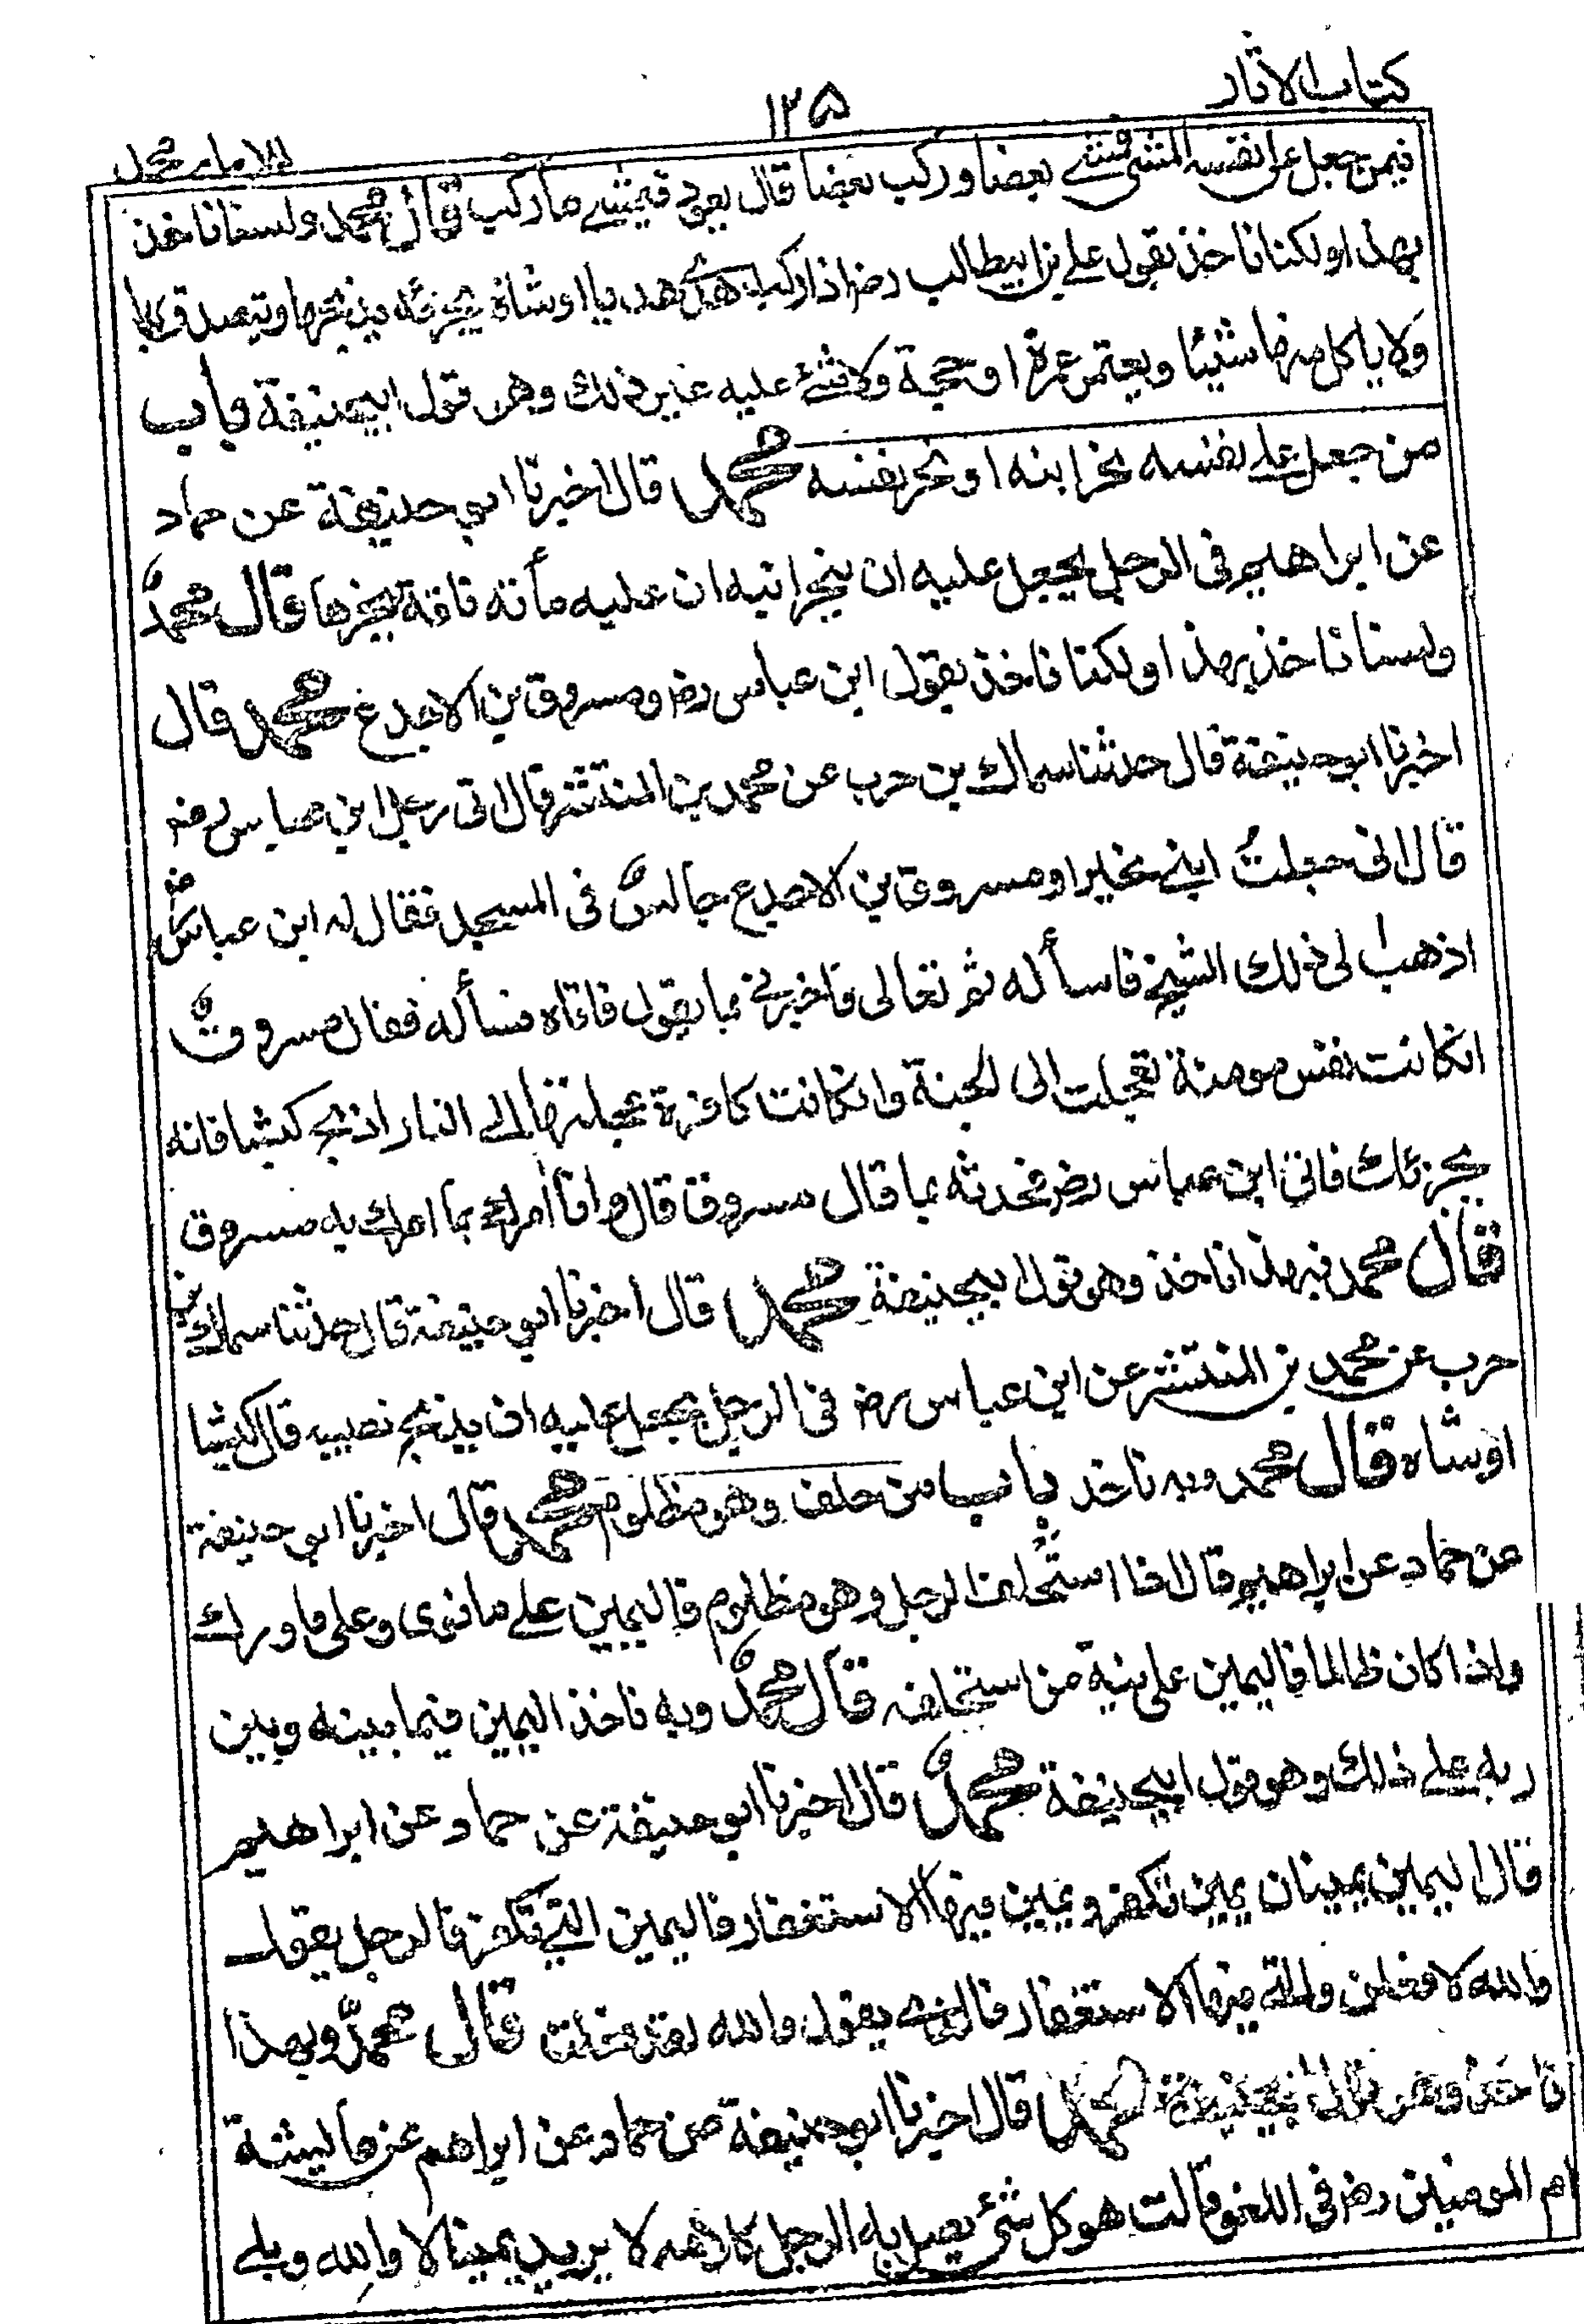 كتاب الآثار
١٢٥
للامام محمد
فيمن جعل على نفسه المشى فمشى بعضا وركب بعضا قال يعود فيمشى ما ركب قال محمد ولسنا ناخذ
بهذا ولكنا ناخذ بقول على بن ابيطالب رضـ اذا ركب اهدى هديا او شاة يجزئه يذبحها ويتصدق بها
ولا ياكل منها شيئا ويعتمر عمرة او حجة ولا شئ عليه غير ذلك وهو قول ابيحنيفة باب
من جعل على نفسه نحر ابنه او نحر نفسه محمد قال اخبرنا ابو حنيفة عن حماد
عن ابراهيم فى الرجل يجعل عليه ان ينحر ابنه ان عليه مأته ناقة ينحرها قال محمد
ولسنا ناخذ بهذا ولكنا ناخذ بقول ابن عباس رضـ ومسروق بن الاجدع محمد قال
اخبرنا ابو حنيفة قال حدثنا سماك بن حرب عن محمد بن المنتشر قال اتى رجل ابن عباس رضـ
قال انى جعلت ابنى نحيرا ومسروق بن الاجدع جالس فى المسجد فقال له ابن عباس رضـ
اذهب الى ذلك الشيخ فاسأله ثم تعالى فاخبرنى بما يقول فاتاه فسأله فقال مسروق
انكانت نفس مومنة تعجلت الى الجنة وانكانت كافرة عجلتها الى النار اذبح كبشا فانه
يجزئك فاتى ابن عباس رضـ فحدثه بما قال مسروق قال وانا أمرك بما امرك به مسروق
قال محمد فبهذا ناخذ وهو قول ابيحنيفة محمد قال اخبرنا ابو حنيفة قال حدثنا سماك بن
حرب عن محمد بن المنتشر عن ابن عباس رضـ فى الرجل يجعل عليه ان يذبح نفسه قال كبشا
او شاه قال محمد وبه ناخذ باب من حلف وهو مظلوم محمد قال اخبرنا ابو حنيفة
عن حماد عن ابراهيم قال اذا استُحلف الرجل وهو مظلوم فاليمين على ما نوى وعلى ما ورك
واذا كان ظالما فاليمين على نية من استحلفه قال محمد وبه ناخذ اليمين فيما بينه وبين
ربه على ذلك وهو قول ابيحنيفة محمد قال اخبرنا ابو حنيفة عن حماد عن ابراهيم
قال اليمين يمينان يمين تكفر ويمين فيها الاستغفار فاليمين التى تكفر فالرجل يقول
والله لا فعلن والتى فيها الاستغفار فالذى يقول والله لقد فعلت قال محمد وبهذا
ناخذ وهو قول ابيحنيفة محمد قال اخبرنا ابو حنيفة عن حماد عن ابراهم عن عايشة
ام المومنين رضـ فى اللغو قالت هو كل شئ يصل به الرجل كلامه لا يريد يمينا لا والله وبلى